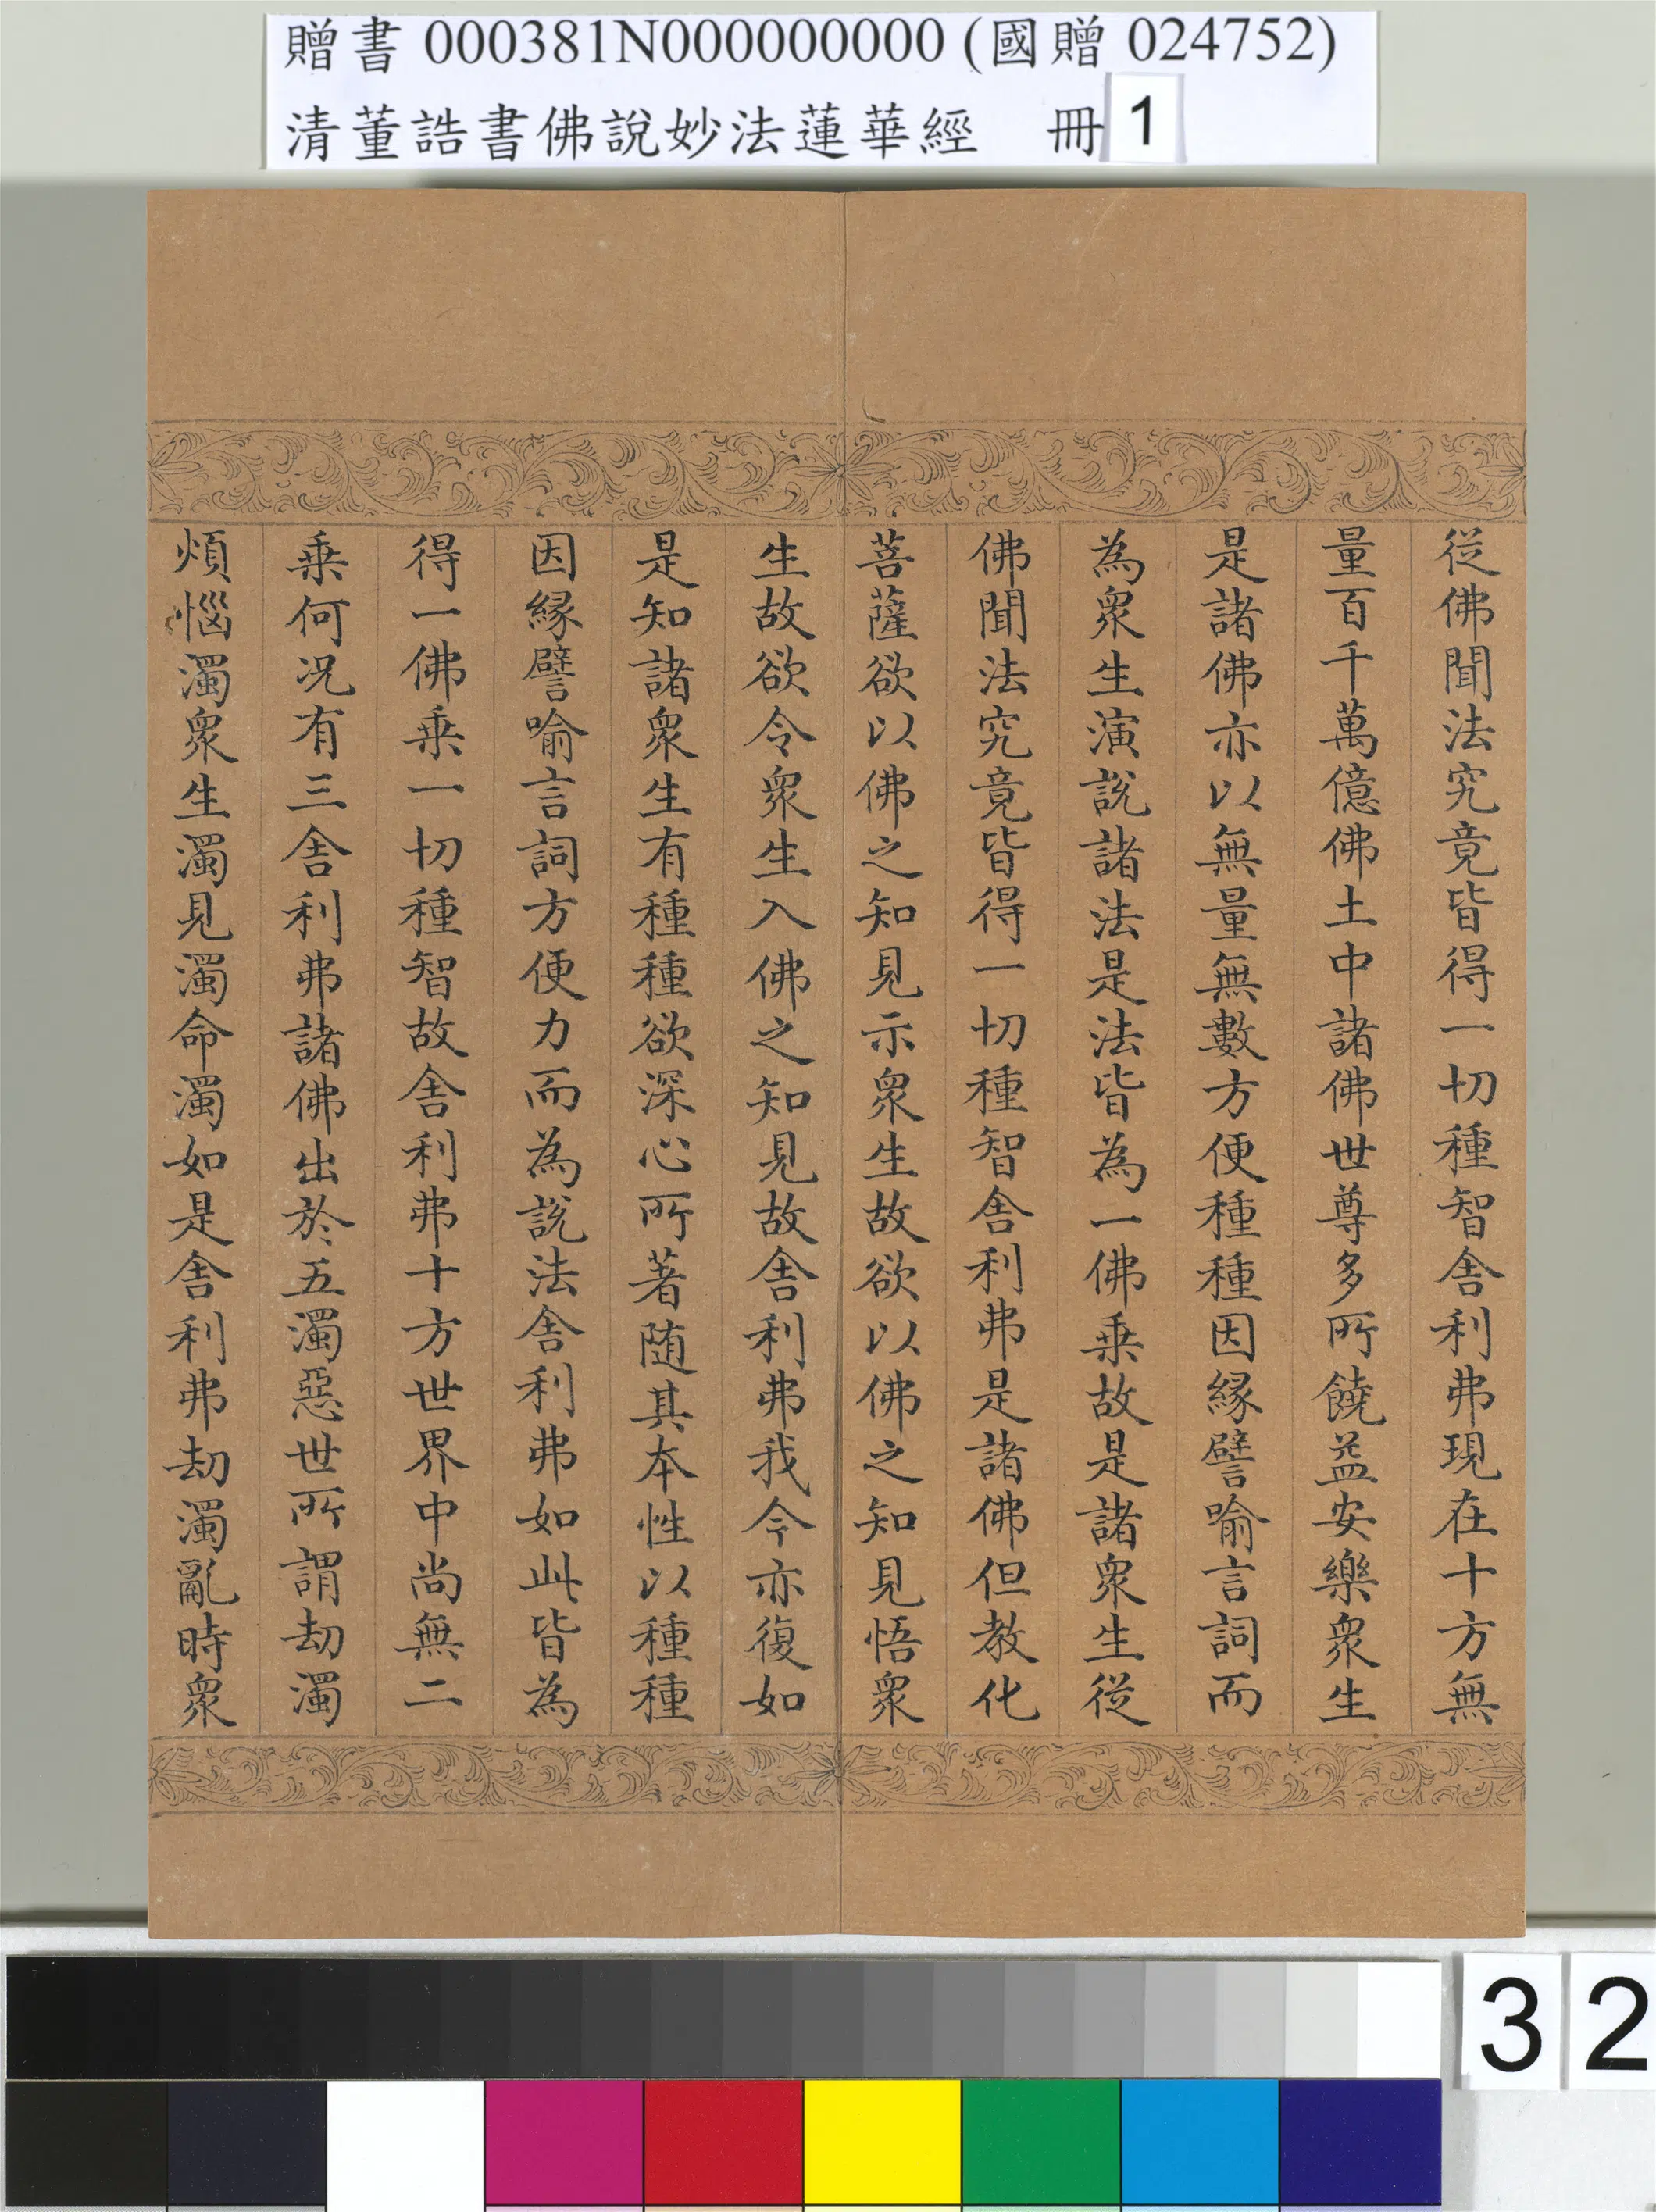 贈書 000381N000000000 (國贈 024752)
清董誥書佛說妙法蓮華經 冊 1
從佛聞法究竟皆得一切種智舎利弗現在十方無
量百千萬億佛土中諸佛世尊多所饒益安樂衆生
是諸佛亦以無量無數方便種種因緣譬喻言詞而
為衆生演說諸法是法皆為一佛乗故是諸衆生從
佛聞法究竟皆得一切種智舎利弗是諸佛但教化
菩薩欲以佛之知見示衆生故欲以佛之知見悟衆
生故欲令衆生入佛之知見故舎利弗我今亦復如
是知諸衆生有種種欲深心所著随其本性以種種
因緣譬喻言詞方便力而為說法舎利弗如此皆為
得一佛乗一切種智故舎利弗十方世界中尚無二
乗何况有三舎利弗諸佛出於五濁惡世所謂劫濁
煩惱濁衆生濁見濁命濁如是舎利弗劫濁亂時衆
32